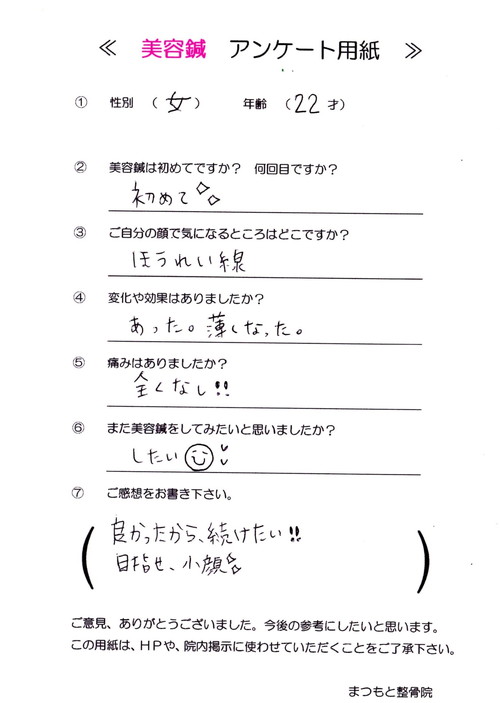 ≪ 美容鍼 アンケート用紙 ≫
① 性別 （ 女 ） 年齢 （ 22 才）
② 美容鍼は初めてですか？ 何回目ですか？
初めて
③ ご自分の顔で気になるところはどこですか？
ほうれい線
④ 変化や効果はありましたか？
あった。薄くなった。
⑤ 痛みはありましたか？
全くなし!!
⑥ また美容鍼をしてみたいと思いましたか？
したい
⑦ ご感想をお書き下さい。
良かったから、続けたい!!
目指せ、小顔
ご意見、ありがとうございました。今後の参考にしたいと思います。
この用紙は、ＨＰや、院内掲示に使わせていただくことをご了承下さい。
まつもと整骨院